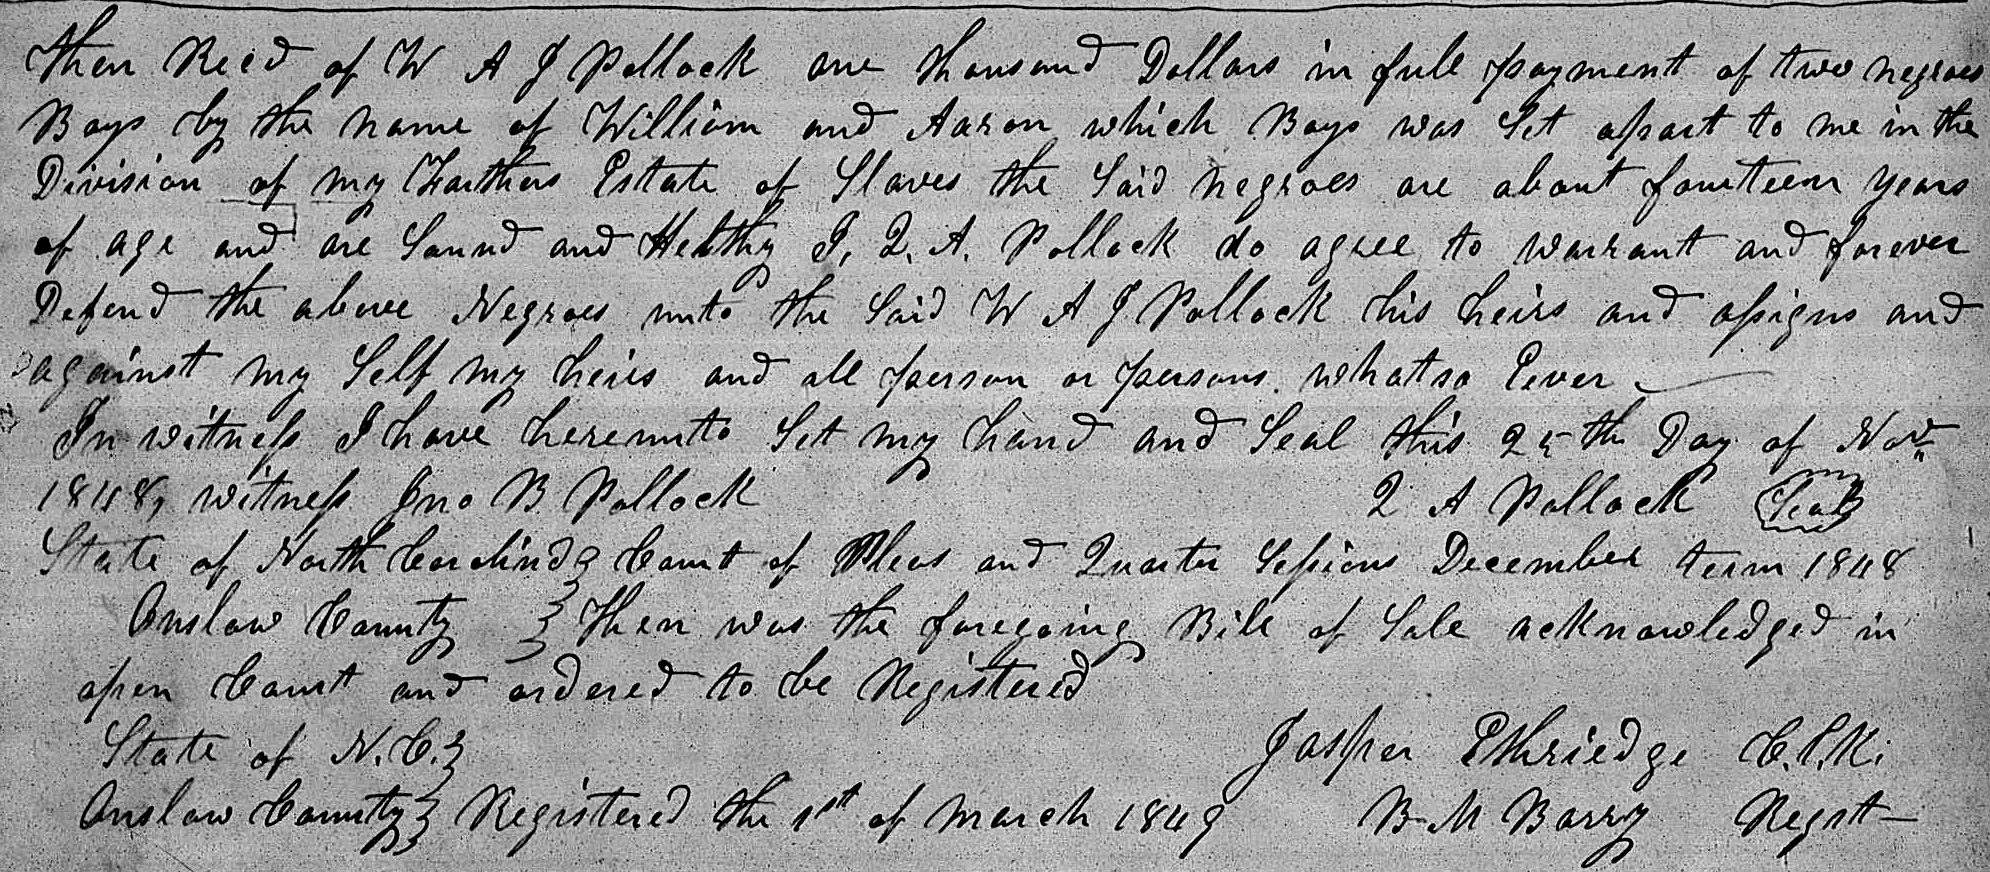 Then Recd of W A J Pollock one thousand Dollars in full payment of two negroes
Boys by the name of William and Aaron which Boys was Set apart to me in the
Division of my Farthers Estate of Slaves the Said negroes are about fourteen years
of age and are Sound and Helthy I, Q. A. Pollock do agree to warrant and forever
Defend the above Negroes unto the Said W A J Pollock his heirs and assigns and
against my Self my heirs and all person or persons whatso Eever
In witness I have hereunto Set my hand and Seal this 25th Day of Novr
1848, witness Jno B Pollock Q A Pollock Seal
State of North Carolina Court of Pleas and Quarter Sessions December term 1848
Onslow County Then was the foregoing Bill of Sale acknowledged in
open Court and ordered to be Registered
State of N. C. Jasper Ethriedge C.l.K.
Onslow County Registered the 1st of March 1849 B M Barry Regst